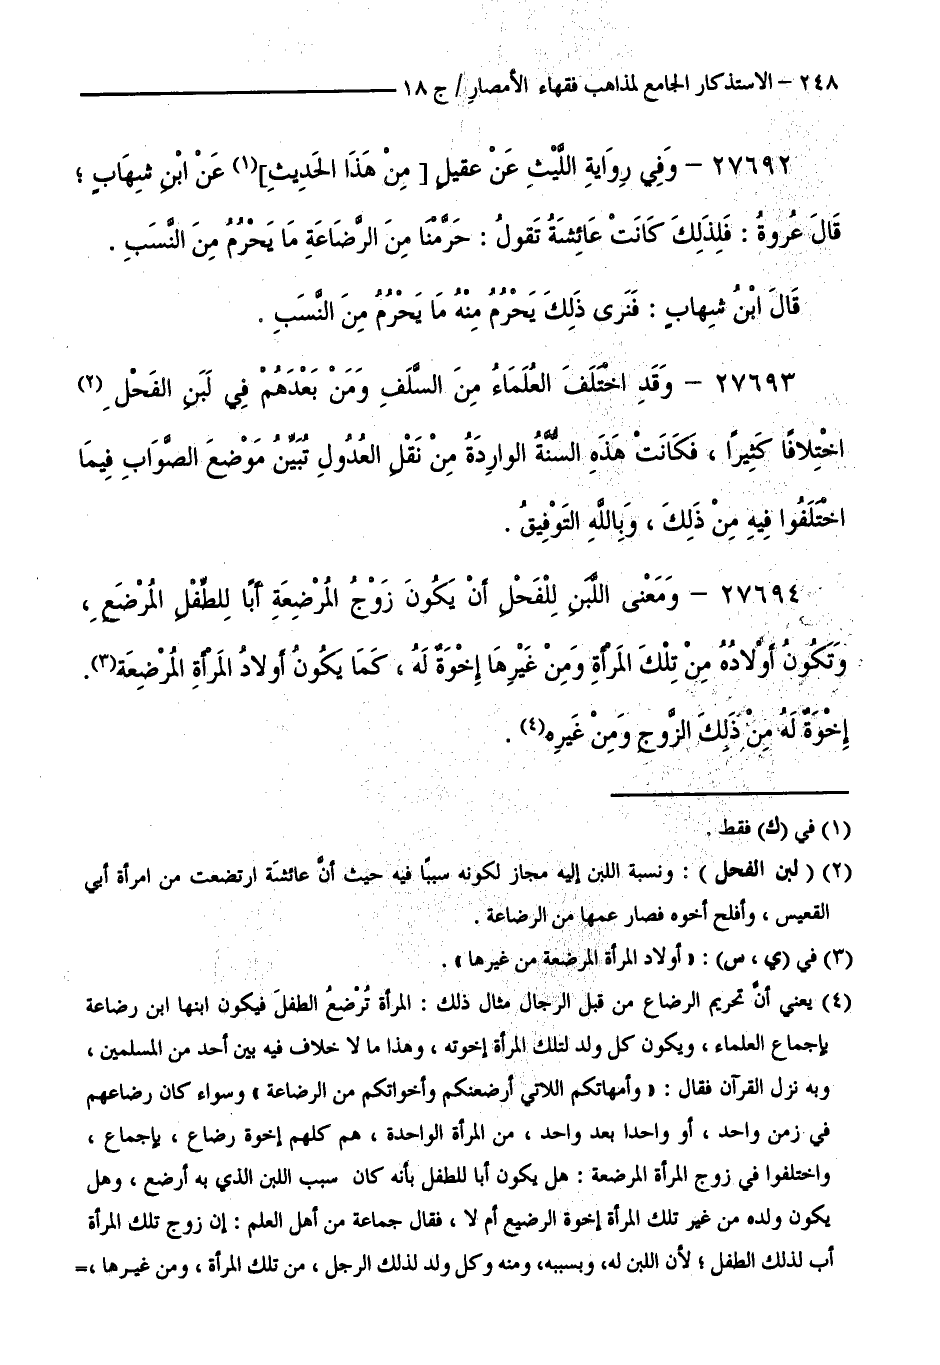 ٢٤٨ – الاستذكار الجامع لمذاهب فقهاء الأمصارِ / ج ١٨
٢٧٦٩٢ – وَفِي رِوَايةِ اللَّيْثِ عَنْ عقيلٍ [ مِنْ هَذَا الحَديثِ](١) عَنْ ابْنِ شِهَابٍ ؛
قَالَ عُروةُ : فَلِذَلِكَ كَانَتْ عَائِشَةُ تَقولُ : حَرَّمْنَا مِنَ الرَّضَاعَةِ مَا يَحْرُمُ مِنَ النَّسَبِ .
قَالَ ابْنُ شِهابٍ : فَنَرى ذَلِكَ يَحْرُمُ مِنْهُ مَا يَحْرُمُ مِنَ النَّسَبِ .
٢٧٦٩٣ – وَقَدِ اخْتَلَفَ العُلَمَاءُ مِنَ السَّلَفِ وَمَنْ بَعْدَهُمْ فِي لَبَنِ الفَحْلِ (٢)
اخْتِلافًا كَثِيرًا ، فَكَانَتْ هَذَهِ السُّنَّةُ الوارِدَةُ مِنْ نَقْلِ العُدُولِ تُبَيِّنُ مَوْضعَ الصَّوَابِ فِيمَا
اخْتَلَفُوا فِيهِ مِنْ ذَلِكَ ، وَبِاللَّهِ التَوْفِيقُ .
٢٧٦٩٤ – وَمَعْنى اللَّبَنِ لِلْفَحْلِ أَنْ يَكُونَ زَوْجُ المُرْضِعَةِ أَبًا لِلطِّفْلِ المُرْضَعِ ،
وَتَكُونُ أَوْلادُهُ مِنْ تِلْكَ المَرأَةِ وَمِنْ غَيْرِهَا إِخْوَةٌ لَهُ ، كَمَا يَكُونُ أَولادُ المَرْأَةِ المُرْضِعَة(٣).
إِخْوَةٌ لَهُ مِنْ ذَلِكَ الزَّوجِ وَمِنْ غَيرِه(٤) .
(١) في (ك) فقط .
(٢) ( لبن الفحل ) : ونسبة اللبن إليه مجاز لكونه سببًا فيه حيث أنَّ عائشَة ارتضعت من امرأة أبي
القعيس ، وأفلح أخوه فصار عمها من الرضاعة .
(٣) في (ي ، س) : « أولاد المرأة المرضعة من غيرها » .
(٤) يعني أنَّ تحريم الرضاع من قبل الرجال مثال ذلك : المرأة تُرْضعُ الطفلَ فيكون ابنها ابن رضاعة
بإجماع العلماء ، ويكون كل ولد لتلك المرأة إخوته ، وهذا ما لا خلاف فيه بين أحد من المسلمين ،
وبه نزل القرآن فقال : « وأمهاتكم اللاتي أرضعنكم وأخواتكم من الرضاعة » وسواء كان رضاعهم
في زمن واحد ، أو واحدا بعد واحد ، من المرأة الواحدة ، هم كلهم إخوة رضاع ، بإجماع ،
واختلفوا في زوج المرأة المرضعة : هل يكون أبا للطفل بأنه كان سبب اللبن الذي به أرضع ، وهل
يكون ولده من غير تلك المرأة إخوة الرضيع أم لا ، فقال جماعة من أهل العلم : إن زوج تلك المرأة
أب لذلك الطفل ؛ لأن اللبن له، وبسببه، ومنه وكل ولد لذلك الرجل ، من تلك المرأة ، ومن غيرها ،=